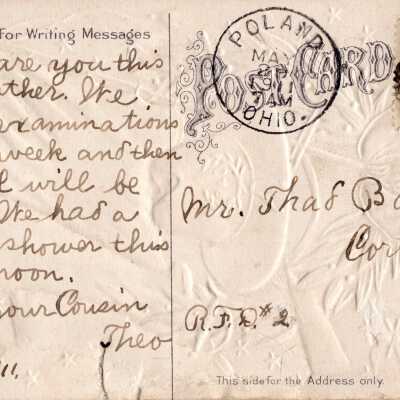 For Writing Messages
are you this
ather. We
examinations
week and then
l will be
We had a
shower this
noon.
your Cousin
Theo
11.
POST CARD
POLAND
MA
7 AM
OHIO.
Mr. Thad B
Cor
R.F.D. #2
This side for the Address only.